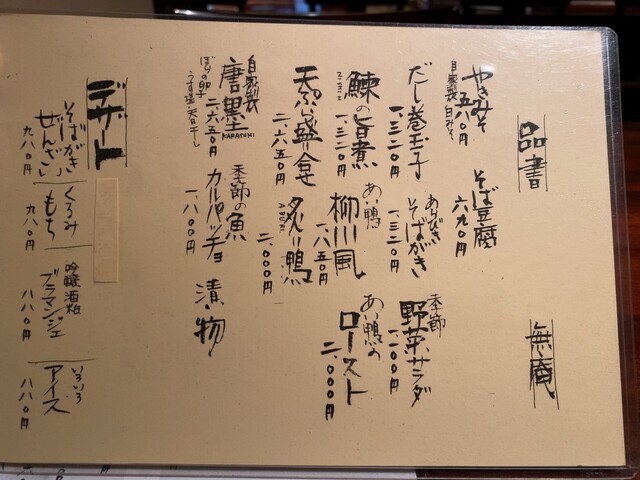 品書
無庵
やきみそ
自家製 白みそ
五八〇円
そば豆腐
六九〇円
だし巻玉子
一、三二〇円
あらびき
そばがき
一、三二〇円
季節
野菜サラダ
一、二〇〇円
鰊の旨煮
ニシン
一、三二〇円
あい鴨
柳川風
一、八五〇円
あい鴨の
ロースト
二、〇〇〇円
天ぷら盛合せ
二、六五〇円
炙り鴨
二、〇〇〇円
自家製
唐墨
KARASUMI
ぼらの卵
うす塩・天日干し
二、六五〇円
季節の魚
カルパッチョ
一、八〇〇円
漬物
デザート
そばがき
ぜんざい
九八〇円
くるみ
もち
九八〇円
吟醸酒粕
ブラマンジェ
八八〇円
いろいろ
アイス
八八〇円